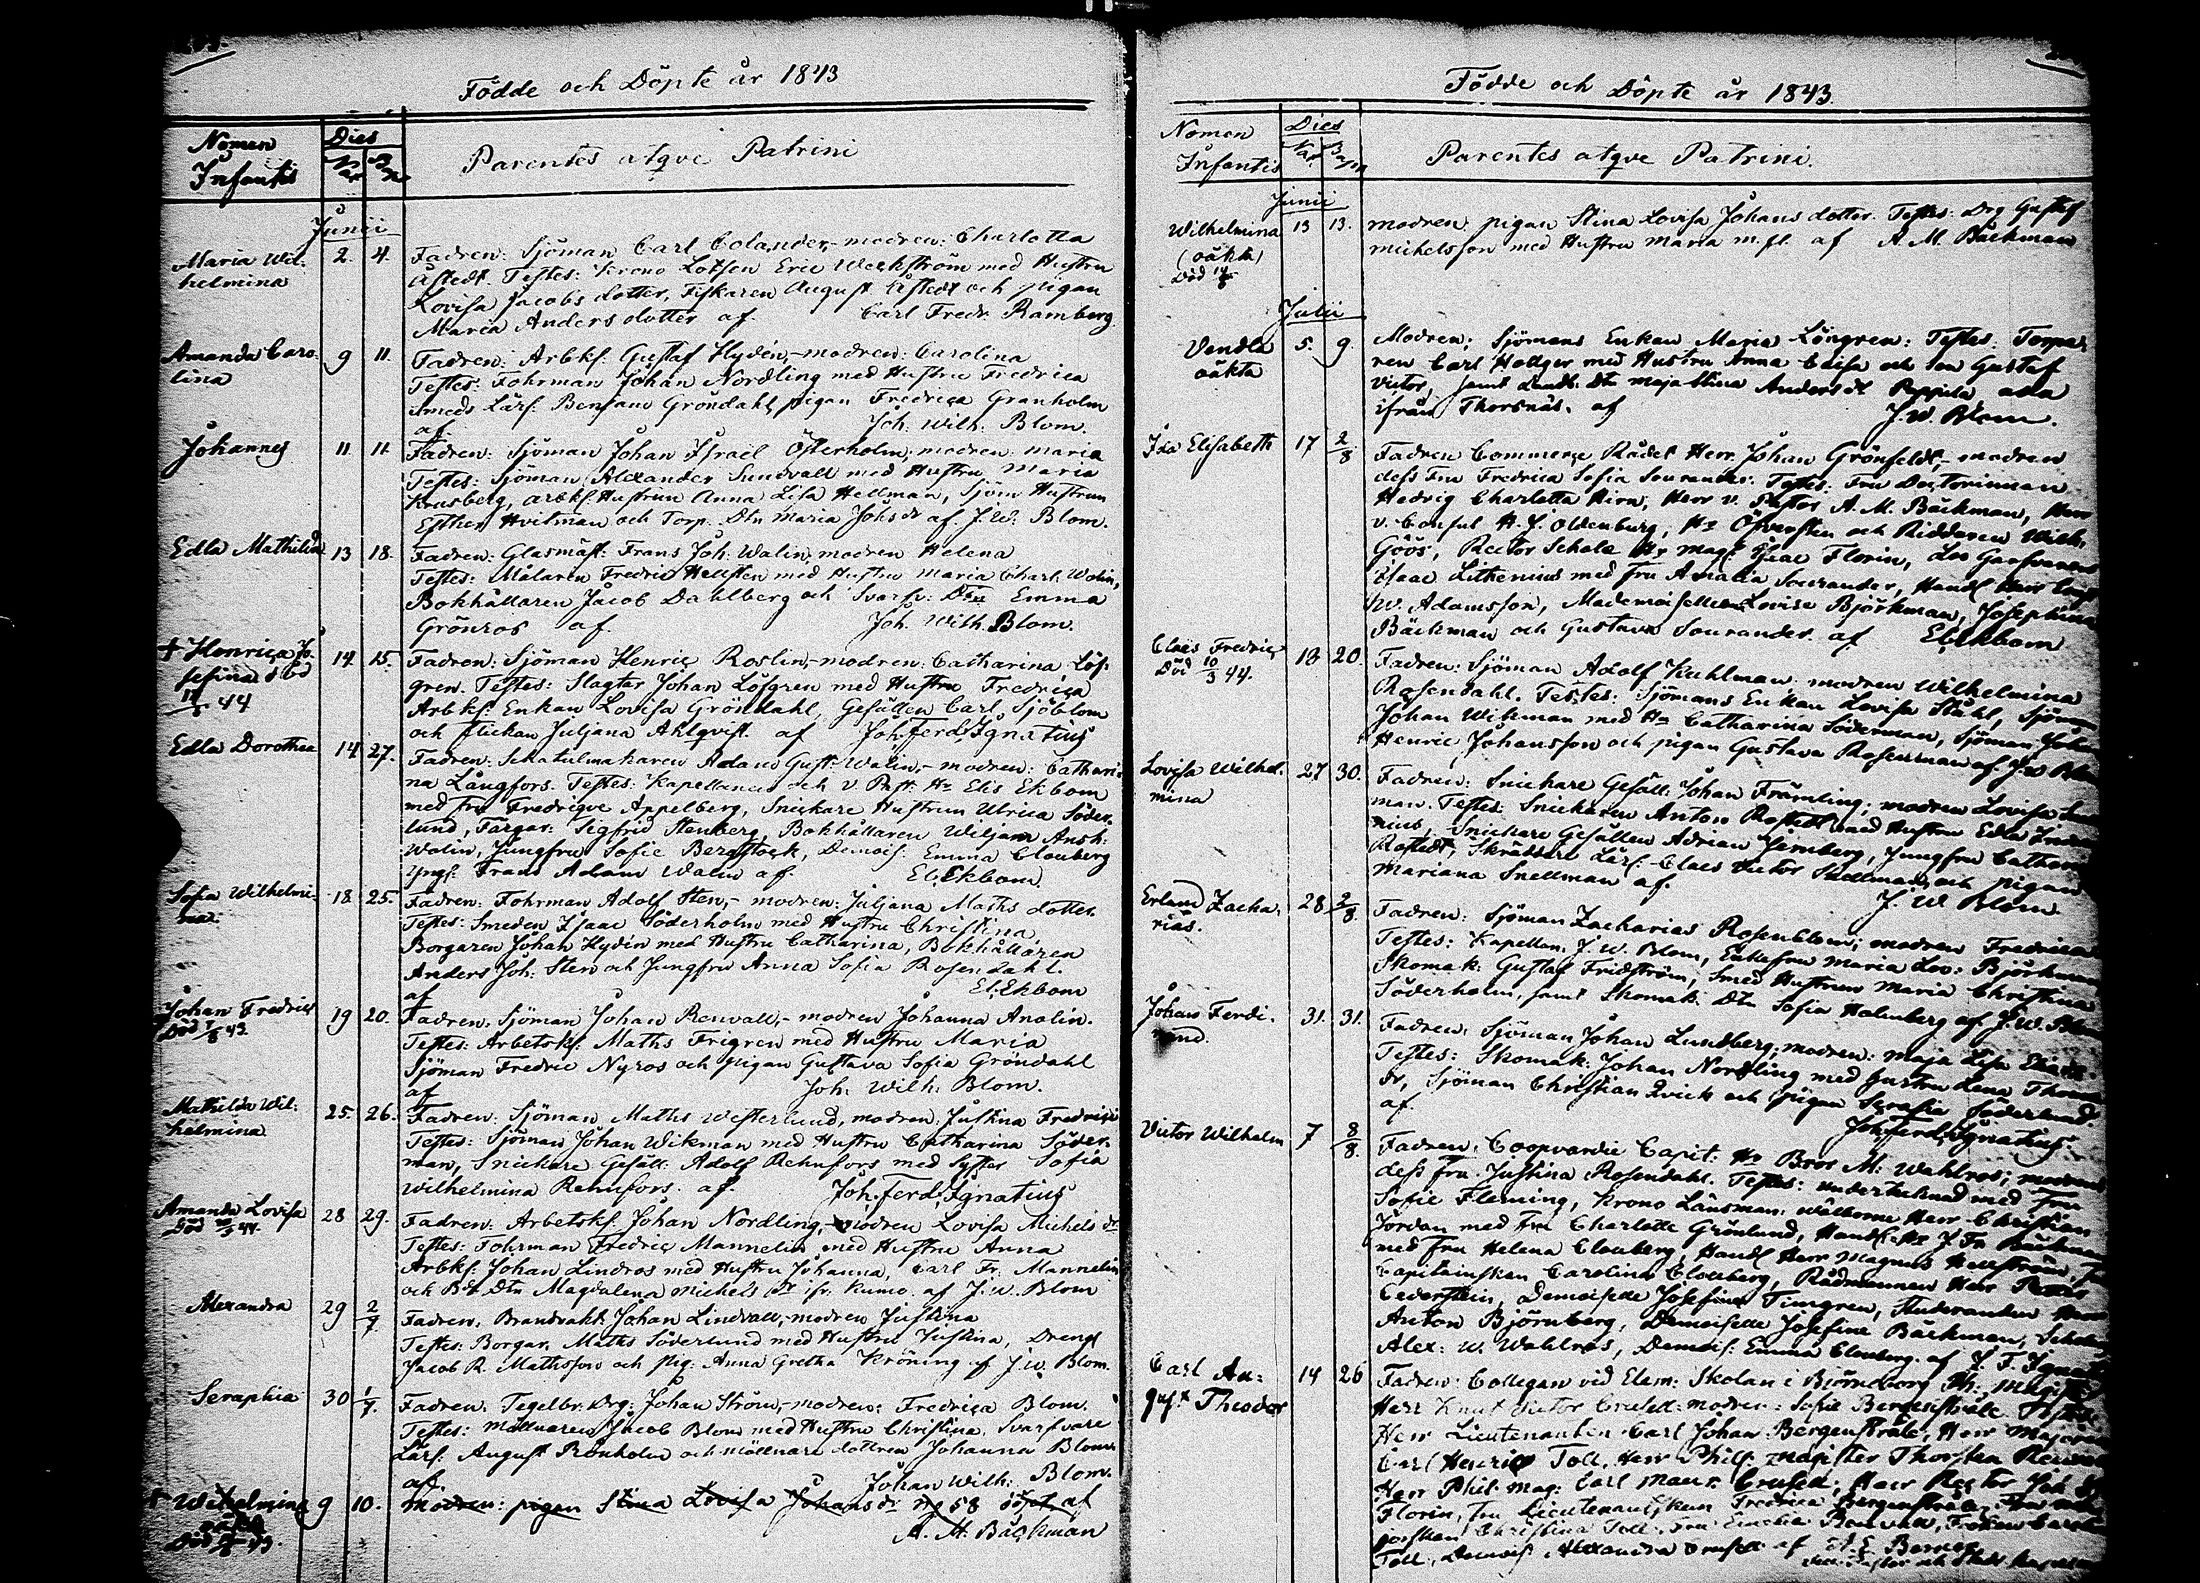 Födde och Döpte år 1843
Nomen Infantis
Dies
Nat
Parentes atqve Patrini
Junii
Maria Wil-
helmina
2. 4.
Fadren: Sjöman Carl Colander, modren: Charlotta
Åstedt. Testes: Krono Lotsen Eric Weckström med Hustru
Lovisa Jacobs dotter, Fiskaren August Åstedt och pigan
Maria Anders dotter af. Carl Fredr. Ramberg.
Amanda Caro-
lina
9 11.
Fadren: Arbks. Gustaf Hydén, modren: Carolina
Testes: Fohrman Johan Nordling med Hustru Fredrica
Smeds Lärl. Gröndahl, pigan Fredrica Granholm
af Joh. Wilh. Blom.
Johannes
11 11.
Fadren: Sjöman Johan Israel Österholm, modren: Maria
Testes: Sjöman Alexander Sundvall med Hustru Maria
Krusberg, arbks. Hustrun Anna Lisa Hellman, Sjöm. Hustrun
Esther Hvitman och Torp. Dtn Maria Johs dr af. J. W. Blom.
Edla Mathilda
13 18.
Fadren: Glasmäst. Frans Joh. Walin, modren Helena
Testes: Målaren Fredric Hellsten med Hustru Maria Charl. Walin,
Bokhållaren Jacob Dahlberg och Svarfv. Dtn Emma
Grönros af. Joh. Wilh. Blom.
† Henrica Jo-
sefina död
44
14 15.
Fadren: Sjöman Henric Roslin, modren: Catharina Löf-
gren. Testes: Slagter Johan Löfgren med Hustru Fredrica
Arbks. Enkan Lovisa Gröndahl, Gesällen Carl Sjöblom
och flickan Juljana Ahlqvist. af Joh. Ferd. Ignatius
Edla Dorothea
14 27.
Fadren: Schatulmakaren Adam Gust. Walin, modren: Cathari-
na Långfors. Testes: Kapellanen och v. Past. Hr Elis Ekbom
med fru Fredrique Appelberg, Snickare Hustrun Ulrica Söder-
lund, Färgar. Sigfrid Stenberg, Bokhållaren Weljam Ansh.
Walin, Jungfru Sofie Bergstock, Demois. Emma Clouberg
Yngl. Frans Adam Walin af. El. Ekbom.
Sofia Wilhelmi-
na.
18 25.
Fadren: Fohrman Adolf Sten, modren: Juljana Maths dotter
Testes: Smeden Isaac Söderholm med Hustru Christina
Borgaren Johan Hydén med Hustru Catharina, Bokhållaren
Anders Joh. Sten och Jungfru Anna Sofia Rosendahl.
af El. Ekbom
Johan Fredric
Död 43.
19 20.
Fadren: Sjöman Johan Renvall, modren Johanna Analin.
Testes: Arbetsks. Maths Frigren med Hustru Maria
Sjöman Fredric Nyros och pigan Gustava Sofia Gröndahl
af Joh. Wilh. Blom.
Mathilda Wil-
helmina
25 26.
Fadren: Sjöman Maths Westerlund, modren: Justina
Testes: Sjöman Johan Wikman med Hustru Catharina Söder-
man, Snickare Gesäll. Adolf Rehnfors med syster Sofia
Wilhelmina Rehnfors. af. Joh. Ferd. Ignatius
Amanda Lovisa
Död 44.
28 29.
Fadren: Arbetsks. Johan Nordling, modren Lovisa Michels dr
Testes: Fohrman Fredric Mannelin med Hustru Anna
Arbks. Johan Lindros med Hustru Johanna, Carl Fr. Mannelin
och Bd. Dtn Magdalena Michels dr ifr. Kumo. af J. W. Blom
Alexandra
29 2/7.
Fadren: Brandvakt Johan Lindvall, modren Justina
Testes: Borgar. Maths Söderlund med Hustru Justina, Dreng
Jacob R. Mathsson och pig. Anna Gretha Kröning af J. W. Blom.
Seraphia
30 1/7.
Fadren: Tegelbr. Drg. Johan Ström, modren: Fredrica Blom.
Testes: Möllnaren Jacob Blom med Hustru Christina, Svarfvare
Lärl. August Rönholm och möllnare dottren Johanna Blom
af. Johan Wilh. Blom.
† Wilhelmina
oäkta
Död 43.
9 10.
modren: pigan Stina Lovisa Johans dr döpt af
A. M. Bäckman
Födde och Döpte år 1843.
Nomen Infantis
Dies
Nat
Parentes atqve Patrini.
Junii
Wilhelmina
(oäkta)
Död
13 13.
modren: pigan Stina Lovisa Johans dotter. Testes: Drg Gustaf
Michelsson med Hustru Maria m. fl. af A. M. Bäckman
Julii
Vendla
oäkta
5. 9
Modren: Sjömans Enkan Maria Löngren: Testes: Torpa-
ren Carl Hollger med Hustru Anna Caisa och son Gustaf
Victor, samt Dtn Maja Stina Anders dr alla
ifrån Thorsnäs. af J. W. Blom.
Ida Elisabeth
17 2/8
Fadren Commerce Rådet Herr Johan Grönfeldt, modren
dess Fru Fredrica Sofia Sourander. Testes: Fru Doctorinnan
Hedvig Charlotta Hirn, Herr v. Pastor A. M. Bäckman, Herr
v. Consul H. J. Oldenburg, Hr Öfversten och Riddaren Wilh.
Göös, Rector Schole Hr Mag. Isaac Florin,
Isaac Lithenius med fru Amalia Sourander, Handl. Herr
W. Adamsson, Mademoisellerna Lovise Björkman, Josephina
Bäckman och Gustava Sourander. af El. Ekbom
Claës Fredric
Död 10/3 44.
18 20.
Fadren: Sjöman Adolf Kuhlman modren Wilhelmina
Rosendahl. Testes: Sjömans Enkan Lovisa Ståhl, Sjöman
Johan Wikman med Hu Catharina Söderman, Sjöman Johan
Henric Johansson och pigan Gustava Roserman af J. W. Blom
Lovisa Wilhel-
mina
27 30.
Fadren: Snickare Gesäll. Johan Främling, modren Lovisa
man. Testes: Snickaren Anton Rostedt med Hustru Edla
Snickare Gesällen Adrian Jernberg, Jungfru Cathar.
Rostedt, Skräddare Lärl. Claes Victor Snellman, och pigan
Mariana Snellman af. J. W. Blom.
Erland Zacha-
rias.
28 2/8.
Fadren: Sjöman Zacharias Rosenblom, modren Fredrica
Testes: Kapellan. J. W. Blom, Enkefru Maria Lov. Björkman
Skomak. Gustaf Fridström, Smed Hustrun Maria Christina
Söderholm, samt Skomak. Dtn Sofia Holmberg af J. W. Blom
Johan Ferdi-
nand.
31. 31.
Fadren: Sjöman Johan Lundberg, modren: Maja Lisa Elias
dr, Testes: Skomak. Johan Nordling med Hustru Lena
Sjöman Christian Qvick och pigan Serafia Söderlund.
af. Joh. Ferd. Ignatius.
Victor Wilhelm
7 8/8.
Fadren: Coopvardie Capit. Hr Bror M. Wahlros, modren
dess fru Justina Rosendahl. Testes: undertecknad med Fru
Sofie Fleming, Krono Länsman, wälborne Herr Christian
Jordan med fru Charlotte Grönlund, Handl. Hr J. Fr. Bäckman
med fru Helena Clouberg, Handl. Herr Magnus Hellström,
Capitainskan Carolina Clouberg, Rådmannen Herr
Cederstein, Demoiselle Josefina Timgren, Studeranden Herr
Anton Björnberg, Demoiselle Josefine Bäckman,
Alex. W. Wahlros, Demois. Emma Clouberg. af J. F. Ignatius
Carl Au-
gust Theodor
14 26
Fadren: Collegan vid Elem. Skolan i Björneborg
Herr Knut Victor Crusell modren: Sofie Bergenstråle Testes:
Herr Lieutenanten Carl Johan Bergenstråle, Herr Majoren
Carl Henric Toll, Herr Phil. Magister Thorsten
Herr Phil. Mag. Carl Crusell, Herr Rector Joh.
Florin, fru Lieutenantskan Fredrica Bergenstråle, Fru
Christina Toll, Fru Emelie Renvall, Fröken
Toll, Demois. Alexandra Crusell af